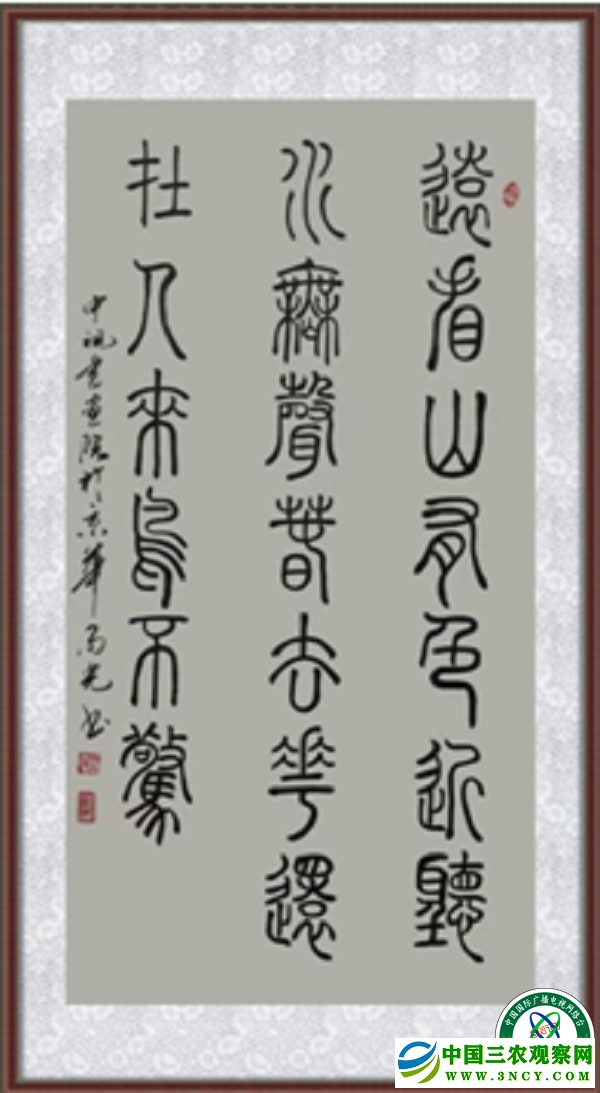 遠看山有色近聽
水無聲春去花還
在人來鳥不驚
中視書畫院於京華
中国国际广播电视网络台
中国三农观察网
WWW.3NCY.COM